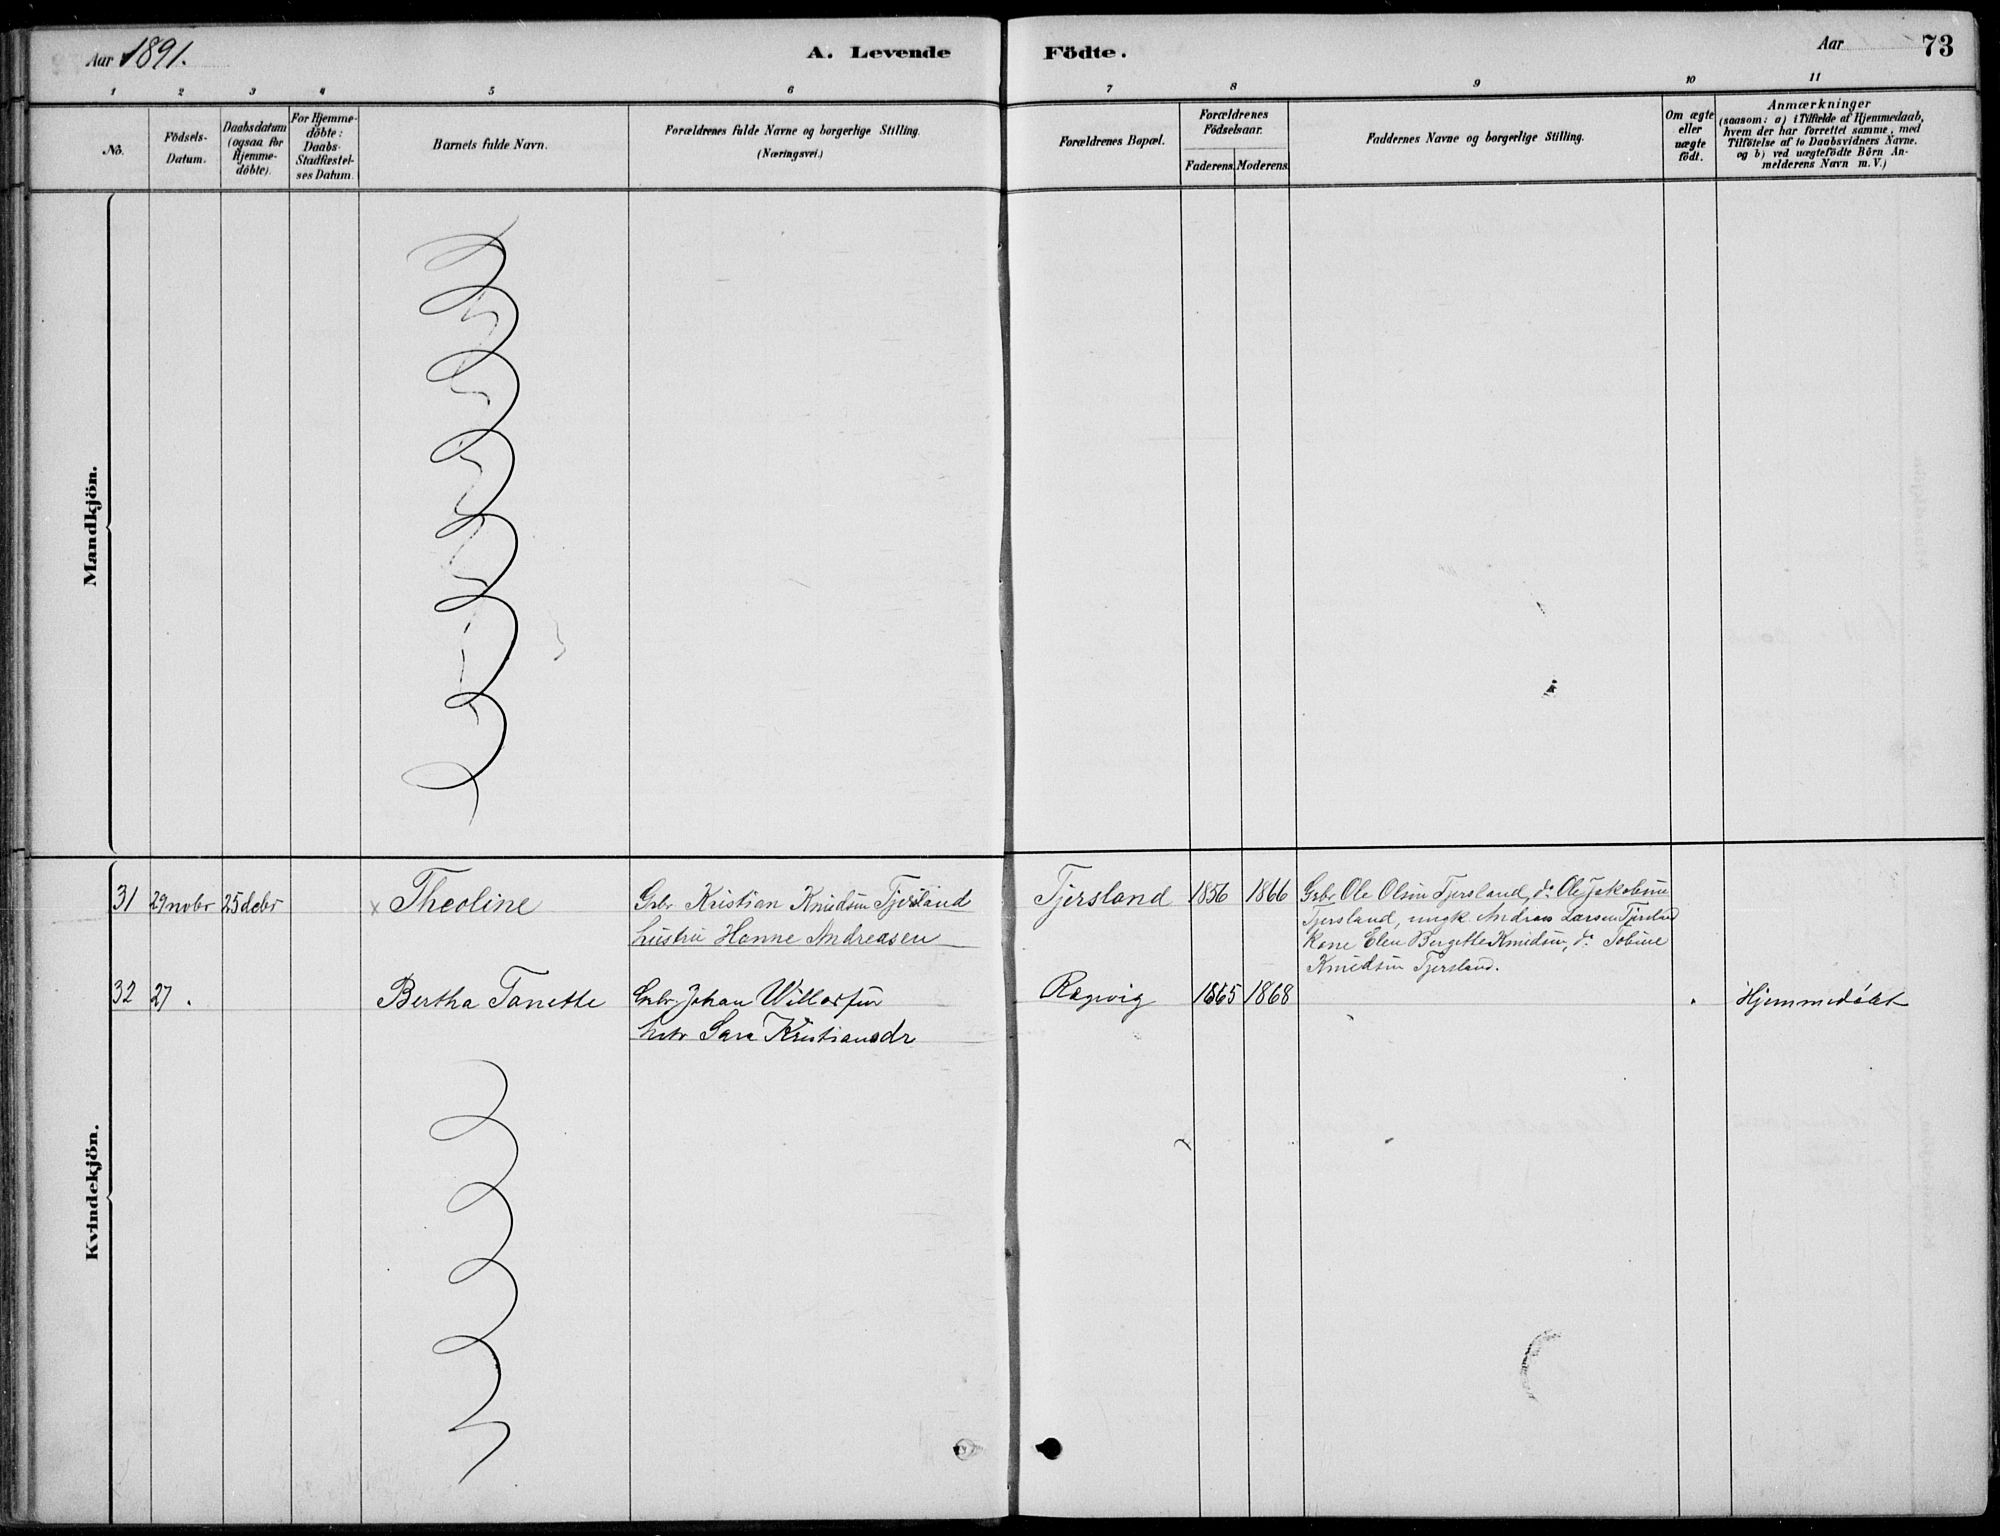 Aar 1891.
A. Levende Födte.
Aar
73
1 2 3 4 5 6 7 8 9 10 11
No.
Födsels-
Datum.
Daabsdatum
(ogsaa for
Hjemme-
döbte).
For Hjemme-
döbte:
Daabs-
Stadfæstel-
ses Datum.
Barnets fulde Navn.
Forældrenes fulde Navne og borgerlige Stilling.
(Næringsvei.)
Forældrenes Bopæl.
Forældrenes
Födselsaar.
Faderens. Moderens.
Faddernes Navne og borgerlige Stilling.
Om ægte
eller
uægte
födt.
Anmærkninger
(saasom: a) i Tilfælde af Hjemmedaab,
hvem der har forrettet samme, med
Tilföielse af to Daabsvidners Navne,
og b) ved uægtefödte Börn An-
melderens Navn m. V.)
Mandkjön.
Kvindekjön.
31 29 novbr 25 debr × Theoline
Gbr. Kristian Knudsen Tjersland
hustru Hanne Andreasen
Tjersland 1856 1866
Gbr. Ole Olsen Tjersland, do Ole Jakobsen
Tjersland, ungk Andreas Larsen Tjersland
Kone Elen Bergitte Knudsen, do Tobine
Knudsen Tjersland.
32 27 . Bertha Tanette
Gbr. Johan Willarsen
hstr Sara Kristiansdr
Røgevig 1865 1868 . Hjemmedöbt